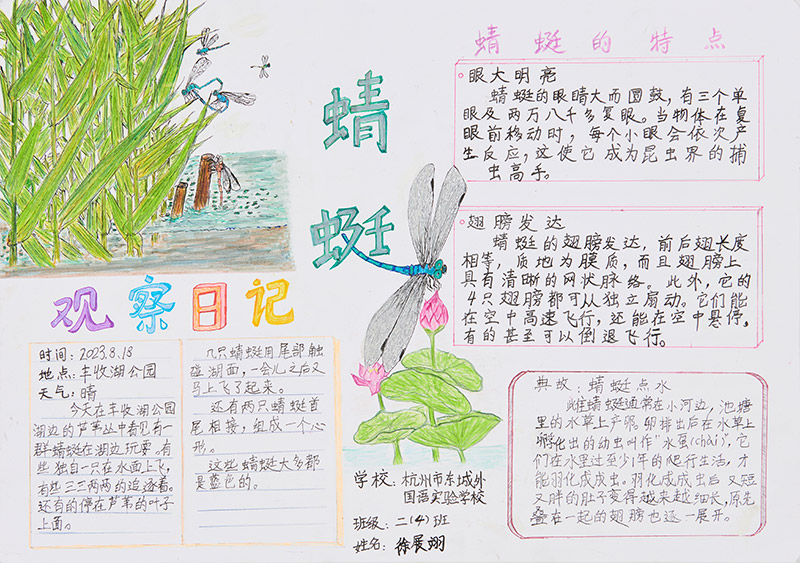 蜻蜓
观察日记
时间：2023.8.18
地点：丰收湖公园
天气：晴
今天在丰收湖公园
湖边的芦苇丛中看见有一
群蜻蜓在湖边玩耍。有
些独自一只在水面上飞，
有些三三两两的追逐着。
还有的停在芦苇的叶子
上面。
几只蜻蜓用尾部触
碰湖面，一会儿之后又
马上飞了起来。
还有两只蜻蜓首
尾相接，组成一个心
形。
这些蜻蜓大多都
是蓝色的。
蜻蜓的特点
眼大明亮
蜻蜓的眼睛大而圆鼓，有三个单
眼及两万八千多复眼。当物体在复
眼前移动时，每个小眼会依次产
生反应，这使它成为昆虫界的捕
虫高手。
翅膀发达
蜻蜓的翅膀发达，前后翅长度
相等，质地为膜质，而且翅膀上
具有清晰的网状脉络。此外，它的
4只翅膀都可以独立扇动。它们能
在空中高速飞行，还能在空中悬停，
有的甚至可以倒退飞行。
典故：蜻蜓点水
雌蜻蜓通常在小河边，池塘
里的水草上产卵。卵排出后在水草上
孵化出的幼虫叫作"水虿(chài)"，它
们在水里过至少1年的爬行生活，才
能羽化成成虫。羽化成成虫后又短
又胖的肚子变得越来越细长，原先
叠在一起的翅膀也逐一展开。
学校：杭州市东城外
国语实验学校
班级：二(4)班
姓名：徐展翊